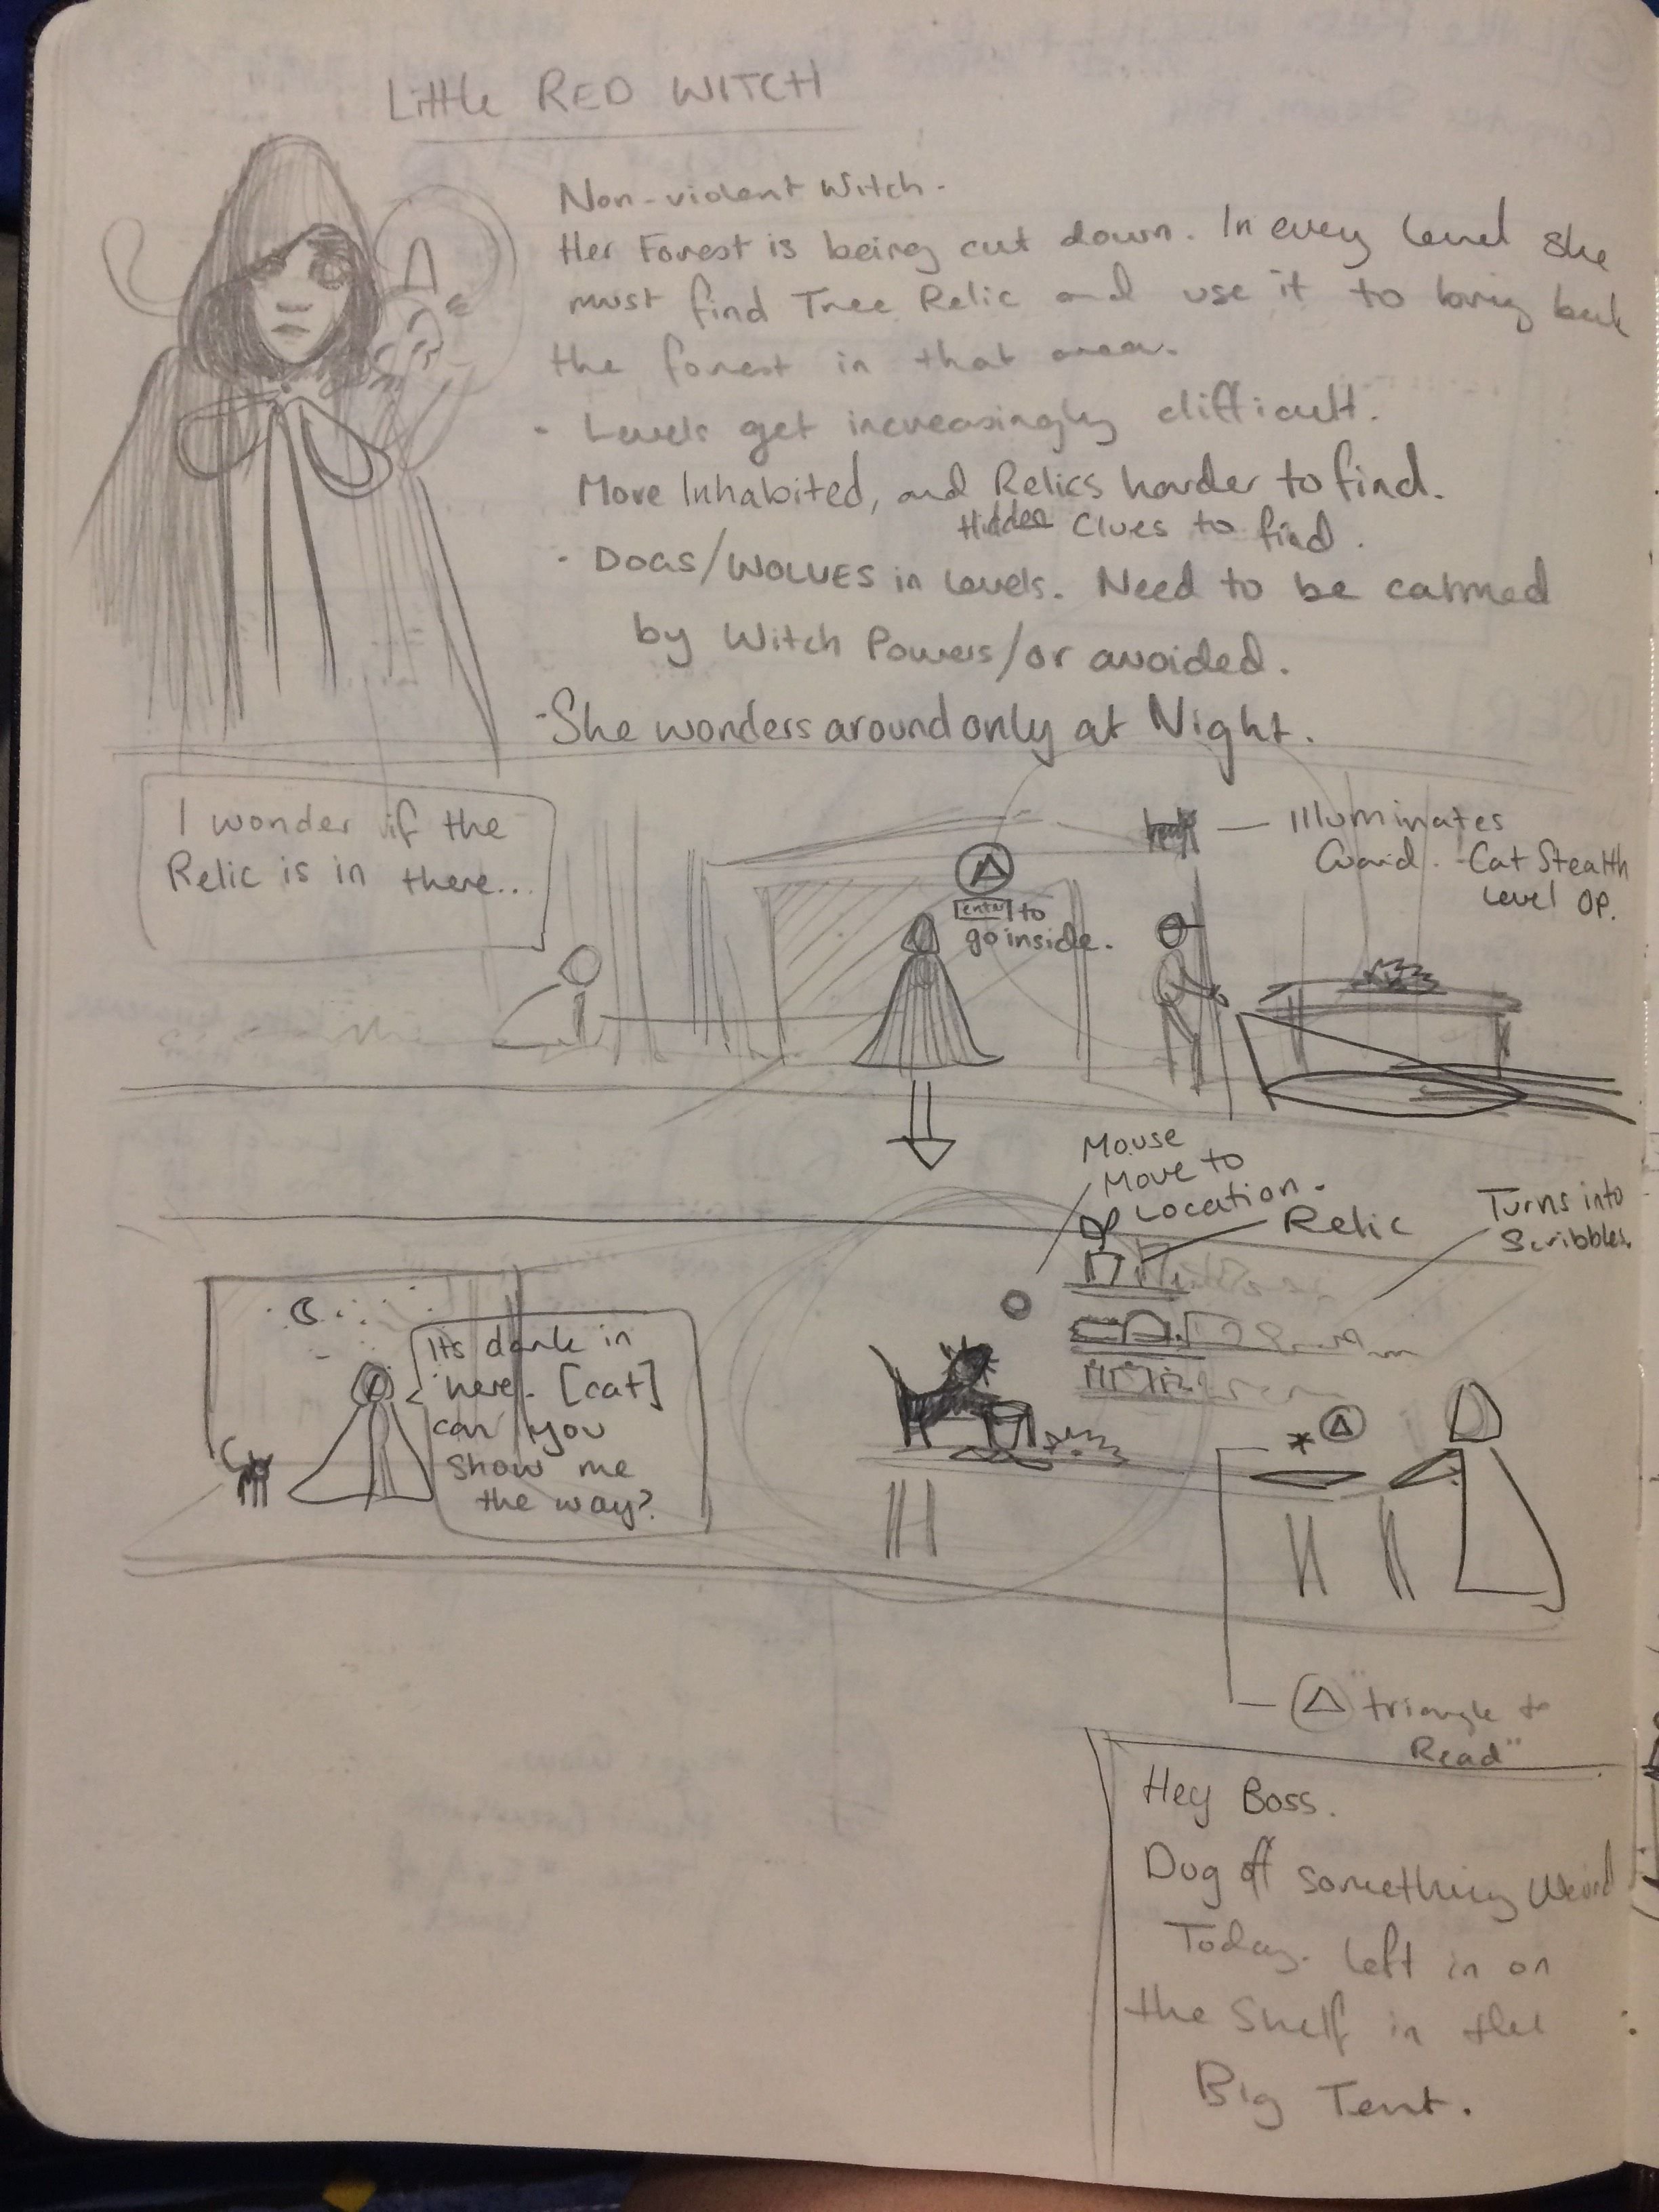 Little RED WITCH
Non-violent Witch.
Her Forest is being cut down. In every level she
must find Tree Relic and use it to bring back
the forest in that area.
- Levels get increasingly difficult.
More Inhabited, and Relics harder to find.
Hidden Clues to find.
- DOGS/WOLVES in levels. Need to be calmed
by Witch Powers/or avoided.
- She wonders around only at Night.
I wonder if the
Relic is in there...
enter to
go inside.
Illuminates
Guard. - Cat Stealth
Level OP.
Mouse
Move to
Location.
Relic
Turns into
Scribbles.
Its dark in
here. [cat]
can you
show me
the way?
"triangle to
Read"
Hey Boss.
Dug off something weird
Today. Left in on
the Shelf in the
Big Tent.